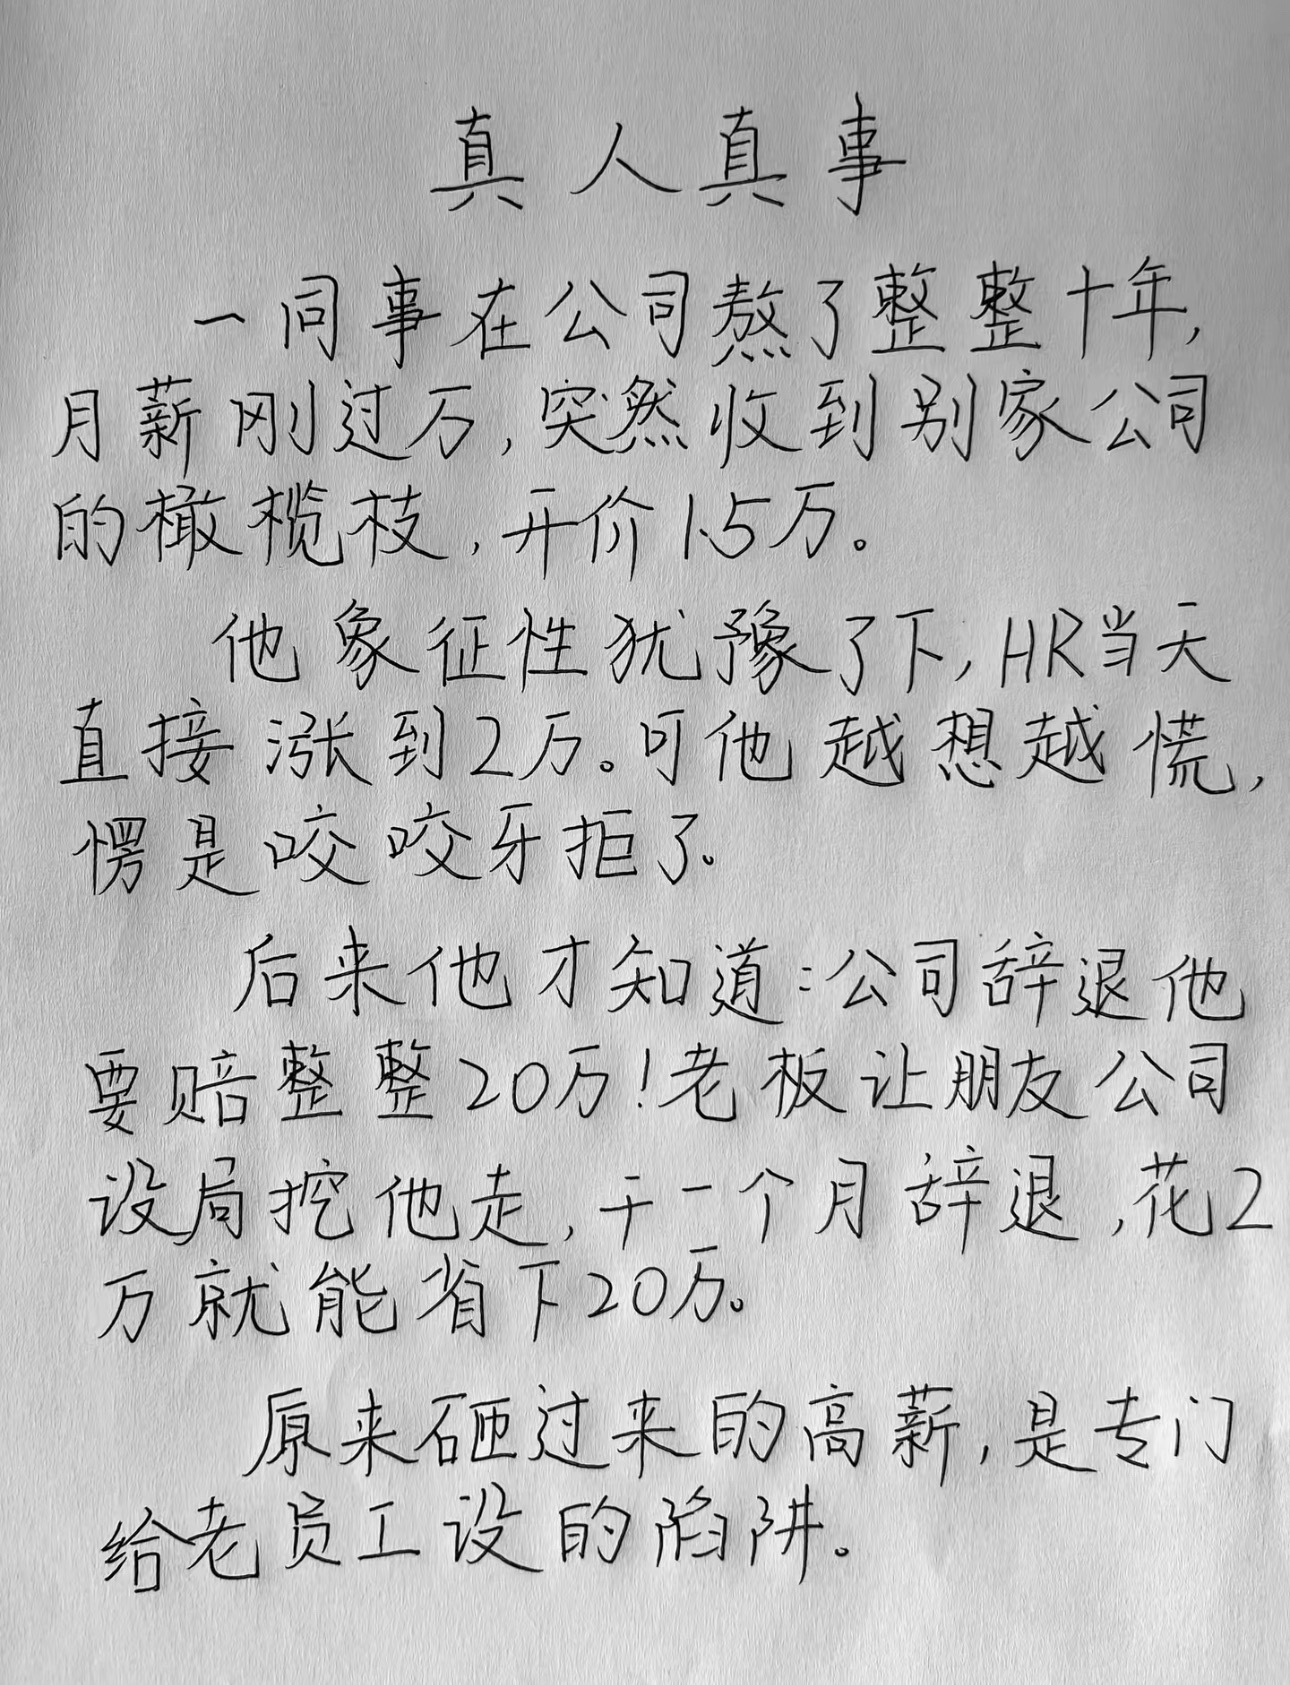 真人真事
一同事在公司熬了整整十年,
月薪刚过万,突然收到别家公司
的橄榄枝,开价1.5万。
他象征性犹豫了下,HR当天
直接涨到2万。可他越想越慌,
愣是咬咬牙拒了。
后来他才知道:公司辞退他
要赔整整20万!老板让朋友公司
设局挖他走,干一个月辞退,花2
万就能省下20万。
原来砸过来的高薪,是专门
给老员工设的陷阱。